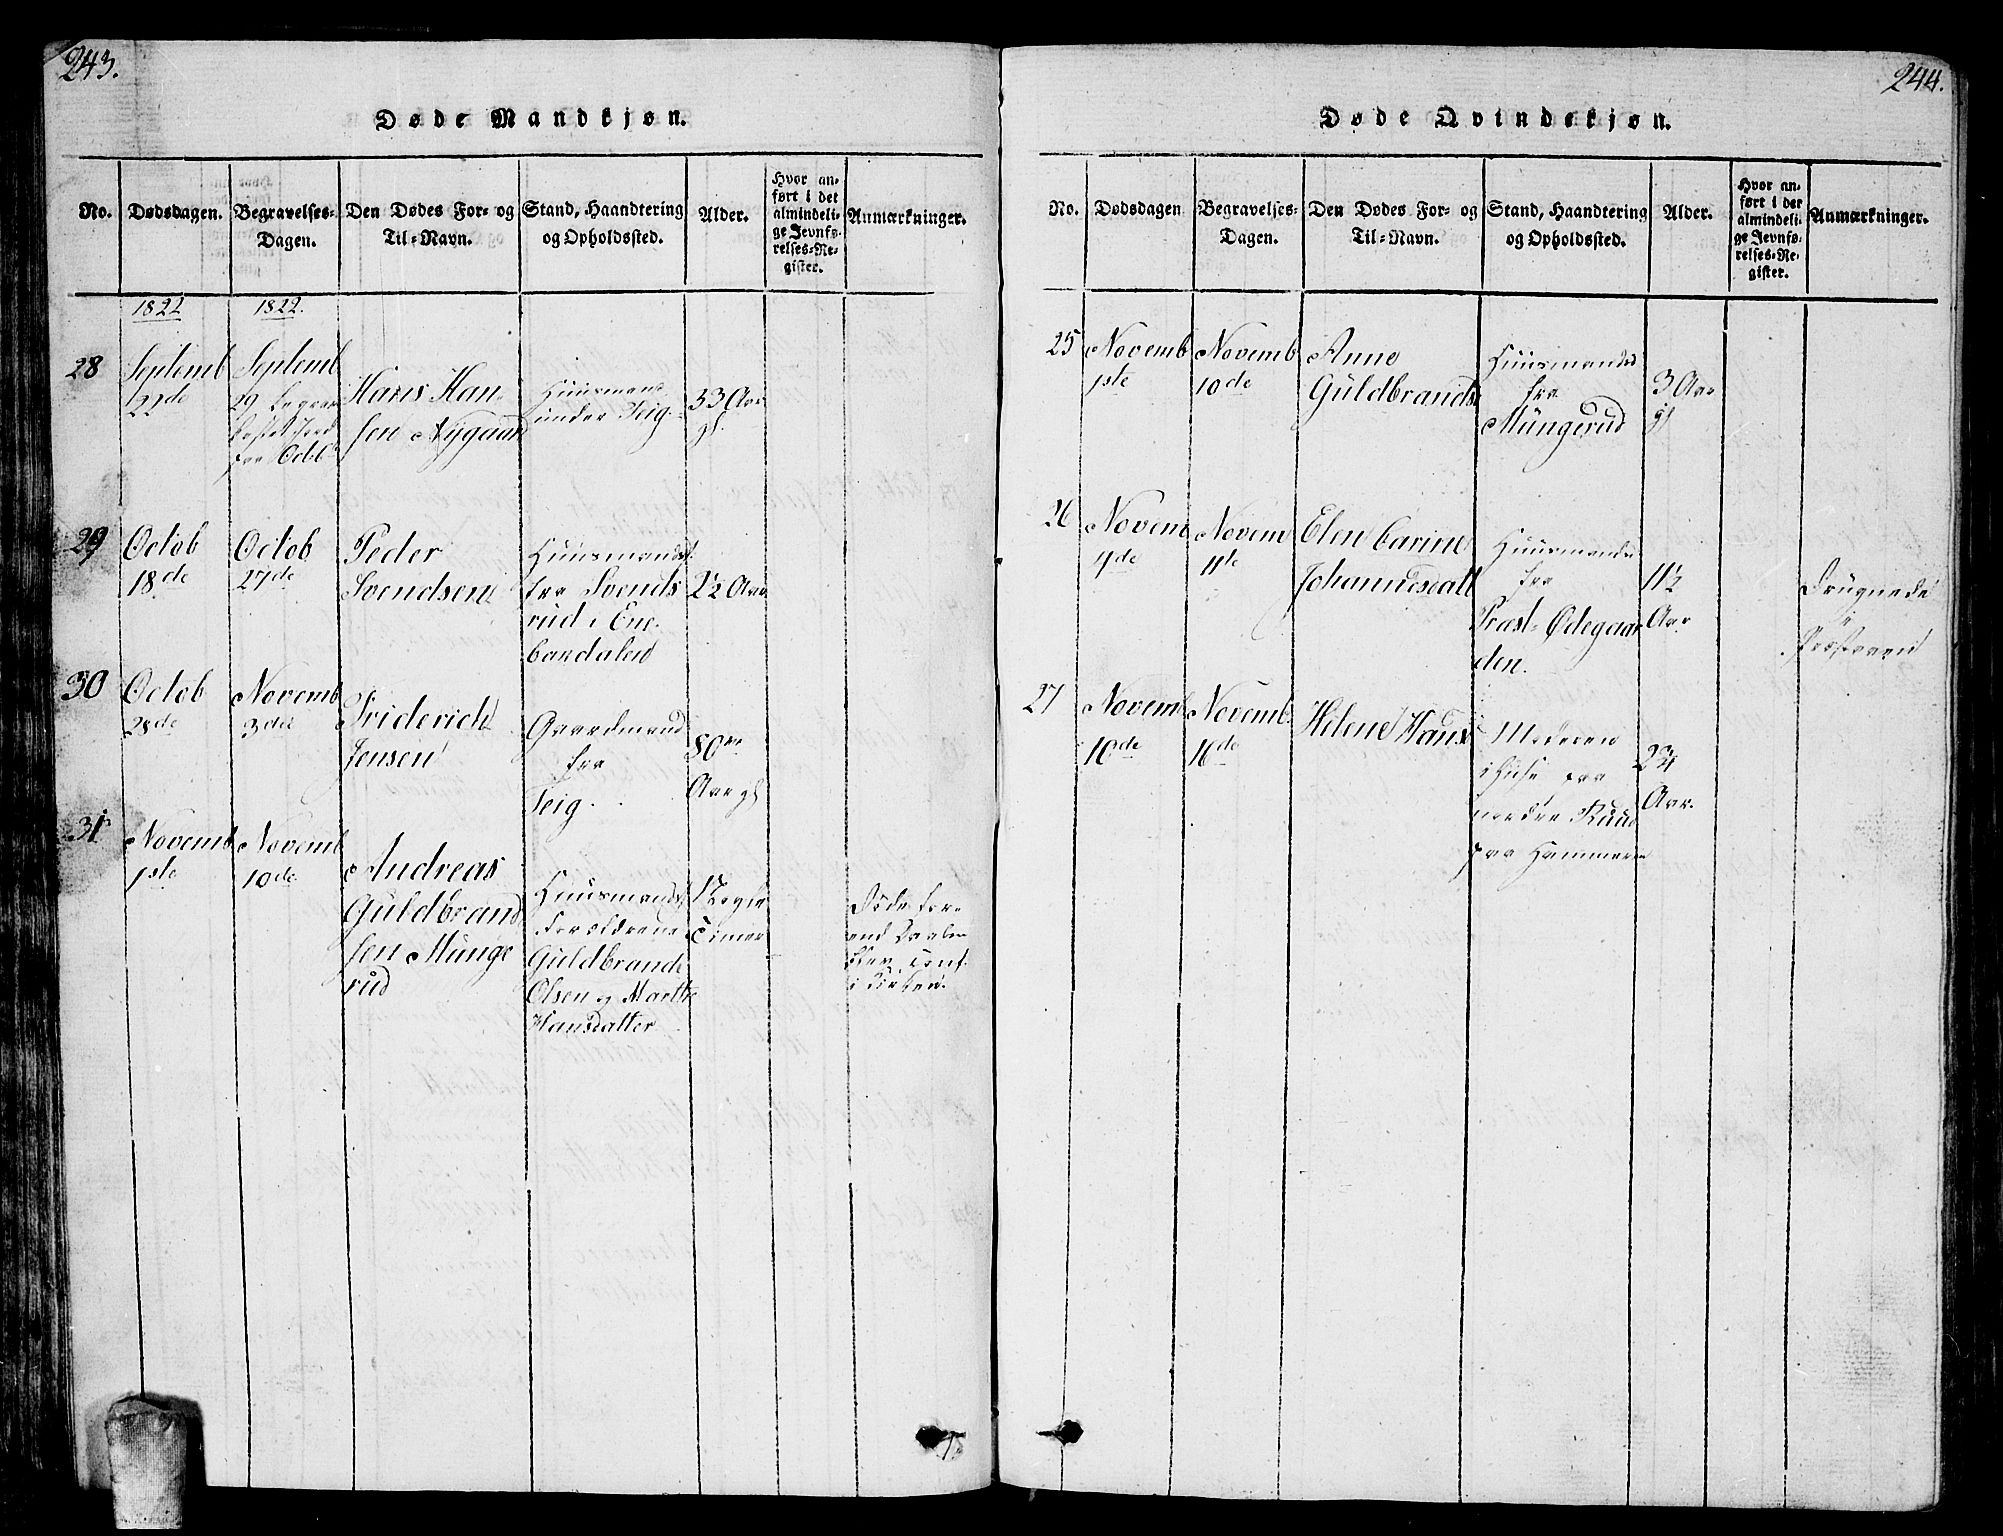 243.
Døde Mandkjøn.
No. Dødsdagen. Begravelses-Dagen. Den Dødes For- og Til-Navn. Stand, Haandtering og Opholdssted. Alder. Hvor anført i det almindelige Jevnførelses-Register. Anmærkninger.
1822 1822.
28 Septemb 22de
Septemb 29
Hans Hansen Nygaard
Huusmand under Teig
53 Aar gl.
29 Octob 18de
Octob 27de
Peder Svendsen
Huusmands
fra Svends
rud i Ene
bardalen
2½ Aar
30 Octob 28de
Novemb 3die
Friderich
Jensen
Gaardmand
fra
Teig.
80
Aar gl
31 Novemb 1ste
Novemb 10de
Andreas
Guldbrand
sen Münge
rud
Huusmands
Forældrene
Guldbrand
Olsen og Marthe
Hansdatter
Nogle
Timer
Døde for-
end
244.
Døde Qvindekjøn.
No. Dødsdagen Begravelses-Dagen. Den Dødes For- og Til-Navn. Stand, Haandtering og Opholdssted. Alder. Hvor anført i det almindelige Jevnførelses-Register. Anmærkninger.
25 Novemb 1ste
Novemb 10de
Anne
Guldbrands
Huusmands
fra
Müngerud
3 Aar
gl
26 Novem 4de
Novem 11te
Elen Carine
Johannesdatt
Huusmands
fra
Præst-Ødegaar
den.
11½
Aar
27 Novemb 10de
Novemb. 16de
Helene Hans
Moderen
i Huse paa
nordre Ruud
paa Hammeren
23
Aar.